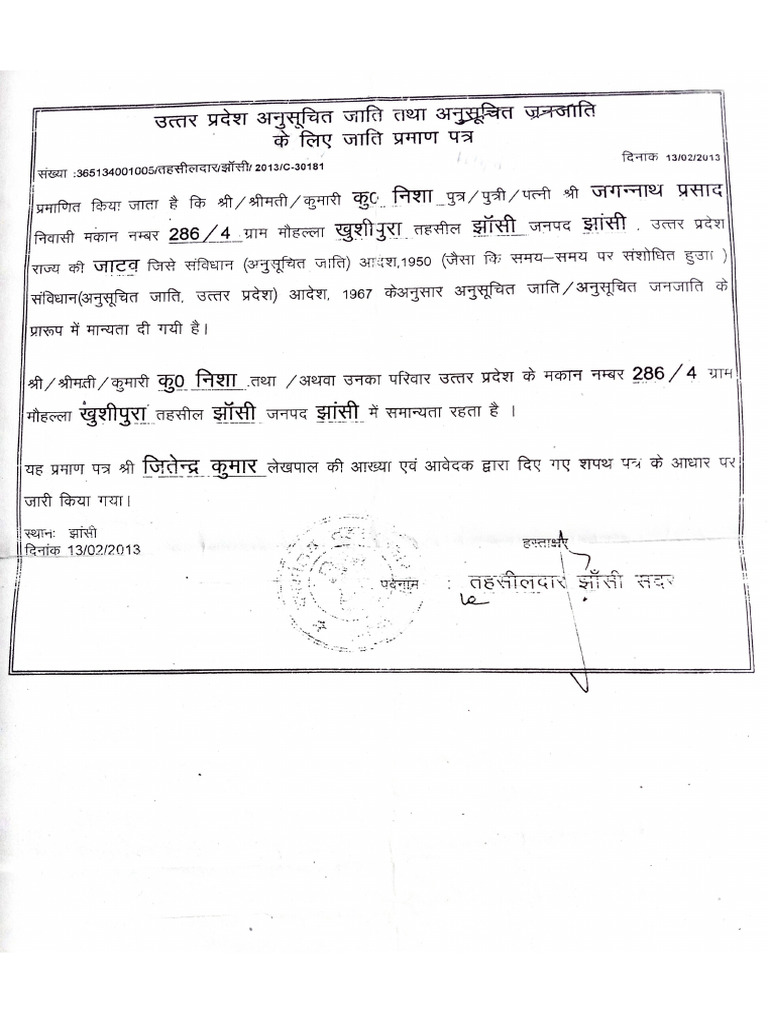 उत्तर प्रदेश अनुसूचित जाति तथा अनुसूचित जनजाति
के लिए जाति प्रमाण पत्र
दिनाक 13/02/2013
संख्या :365134001005/तहसीलदार/झाँसी/ 2013/C-30181
प्रमाणित किया जाता है कि श्री/श्रीमती/कुमारी कु0 निशा पुत्र/पुत्री/पत्नी श्री जगन्नाथ प्रसाद
निवासी मकान नम्बर 286/4 ग्राम मौहल्ला खुशीपुरा तहसील झाँसी जनपद झांसी , उत्तर प्रदेश
राज्य की जाटव जिसे संविधान (अनुसूचित जाति) आदश,1950 (जैसा कि समय–समय पर संशोधित हुआ )
संविधान(अनुसूचित जाति, उत्तर प्रदेश) आदेश, 1967 केअनुसार अनुसूचित जाति/अनुसूचित जनजाति के
प्रारूप में मान्यता दी गयी है।
श्री/श्रीमती/कुमारी कु0 निशा तथा /अथवा उनका परिवार उत्तर प्रदेश के मकान नम्बर 286/4 ग्राम
मौहल्ला खुशीपुरा तहसील झाँसी जनपद झांसी में समान्यता रहता है ।
यह प्रमाण पत्र श्री जितेन्द्र कुमार लेखपाल की आख्या एवं आवेदक द्वारा दिए गए शपथ पत्र के आधार पर
जारी किया गया।
स्थानः झांसी
दिनांक 13/02/2013
हस्ताक्षर
पदेनाम : तहसीलदार झाँसी सदर